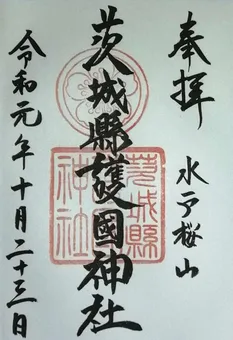 奉拝
水戸桜山
茨城縣護國神社
茨城縣
神社
令和元年十月二十三日